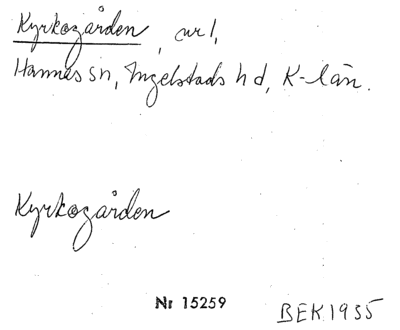 Kyrkogården, avr1,
Hannas sn, Ingelstads hd, K-län.
Kyrkogården
Nr 15259
BEK 1935